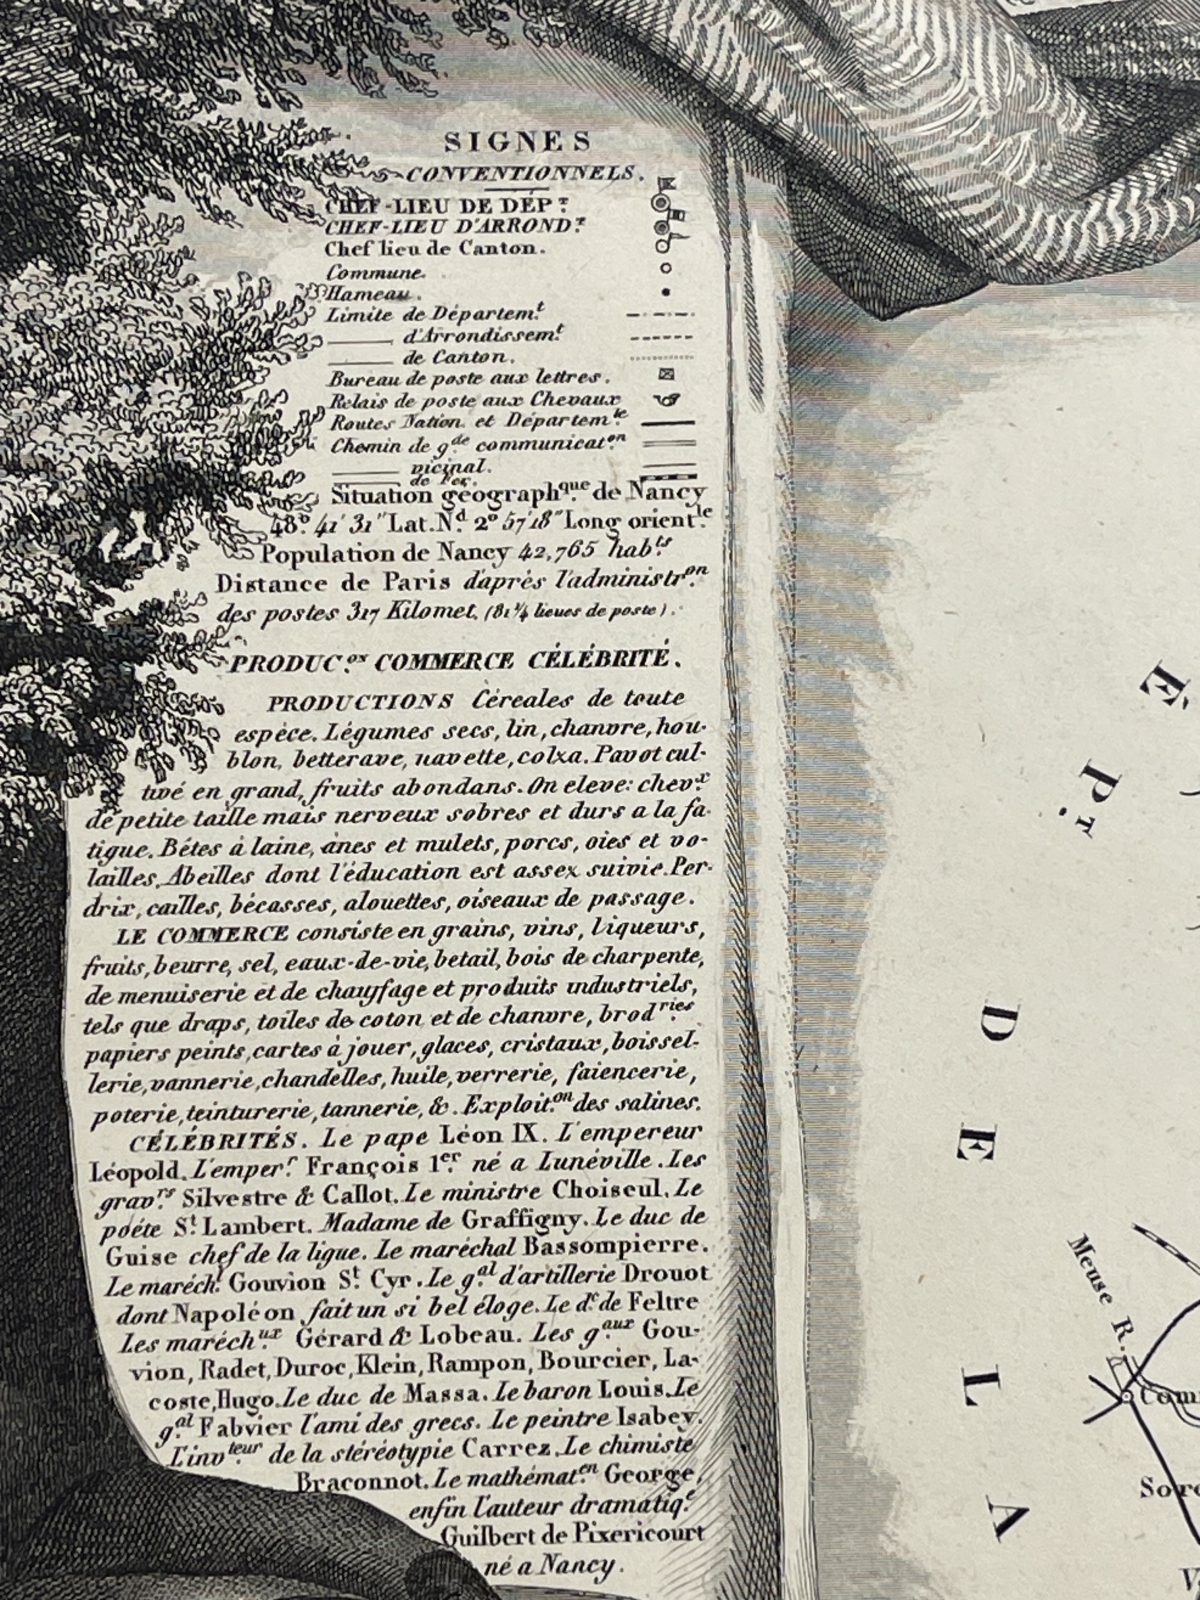 SIGNES
CONVENTIONNELS.
CHEF-LIEU DE DÉP.T
CHEF-LIEU D'ARROND.T
Chef lieu de Canton.
Commune.
Hameau.
Limite de Départem.t
d'Arrondissem.t
de Canton.
Bureau de poste aux lettres.
Relais de poste aux Chevaux
Routes Nation. et Départem.le
Chemin de g.de communicat.on
vicinal.
de Fer.
Situation géograph.que de Nancy
48.° 41' 31" Lat. N.d 2° 57' 18" Long orient.le
Population de Nancy 42,765 hab.ts
Distance de Paris d'après l'administr.on
des postes 317 Kilomet. (81 ¼ lieues de poste).
PRODUC.ON COMMERCE CÉLÉBRITÉ.
PRODUCTIONS Céreales de toute
espèce. Légumes secs, lin, chanvre, hou-
blon, betterave, navette, colza. Pavot cul-
tivé en grand, fruits abondans. On eleve: chev.x
de petite taille mais nerveux sobres et durs a la fa-
tigue. Bétes à laine, ânes et mulets, porcs, oies et vo-
lailles. Abeilles dont l'éducation est assez suivie. Per-
drix, cailles, bécasses, alouettes, oiseaux de passage.
LE COMMERCE consiste en grains, vins, liqueurs,
fruits, beurre, sel, eaux-de-vie, betail, bois de charpente,
de menuiserie et de chauffage et produits industriels,
tels que draps, toiles de coton et de chanvre, brod.ries
papiers peints, cartes à jouer, glaces, cristaux, boissel-
lerie, vannerie, chandelles, huile, verrerie, faiencerie,
poterie, teinturerie, tannerie, &. Exploit.on des salines.
CÉLÉBRITÉS. Le pape Léon IX. L'empereur
Léopold. L'emper.r François 1.er né a Lunéville. Les
grav.rs Silvestre & Callot. Le ministre Choiseul. Le
poéte S.t Lambert. Madame de Graffigny. Le duc de
Guise chef de la ligue. Le maréchal Bassompierre.
Le maréch.l Gouvion S.t Cyr. Le g.al d'artillerie Drouot
dont Napoléon fait un si bel éloge. Le d.c de Feltre
Les maréch.ux Gérard & Lobeau. Les g.aux Gou-
vion, Radet, Duroc, Klein, Rampon, Bourcier, La-
coste, Hugo. Le duc de Massa. Le baron Louis. Le
g.al Fabvier l'ami des grecs. Le peintre Isabey.
L'inv.teur de la stéréotypie Carrez. Le chimiste
Braconnot. Le mathémat.en George,
enfin l'auteur dramatiq.e
Guilbert de Pixericourt
né a Nancy.
DÉP.T
DE LA
Meuse R.
Com
Sorc